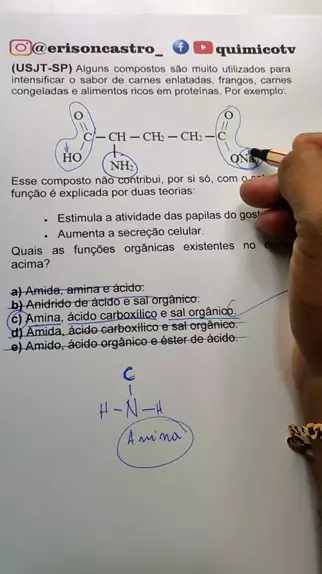 @erisoncastro_ quimicotv
(USJT-SP) Alguns compostos são muito utilizados para
intensificar o sabor de carnes enlatadas, frangos, carnes
congeladas e alimentos ricos em proteínas. Por exemplo:
O O
C – CH – CH₂ – CH₂ – C
HO NH₂ ONa
Esse composto não contribui, por si só, com o
função é explicada por duas teorias:
• Estimula a atividade das papilas do gos
• Aumenta a secreção celular.
Quais as funções orgânicas existentes no
acima?
a) Amida, amina e ácido.
b) Anidrido de ácido e sal orgânico.
c) Amina, ácido carboxílico e sal orgânico.
d) Amida, ácido carboxílico e sal orgânico.
e) Amido, ácido orgânico e éster de ácido.
C
H-N-H
Amina